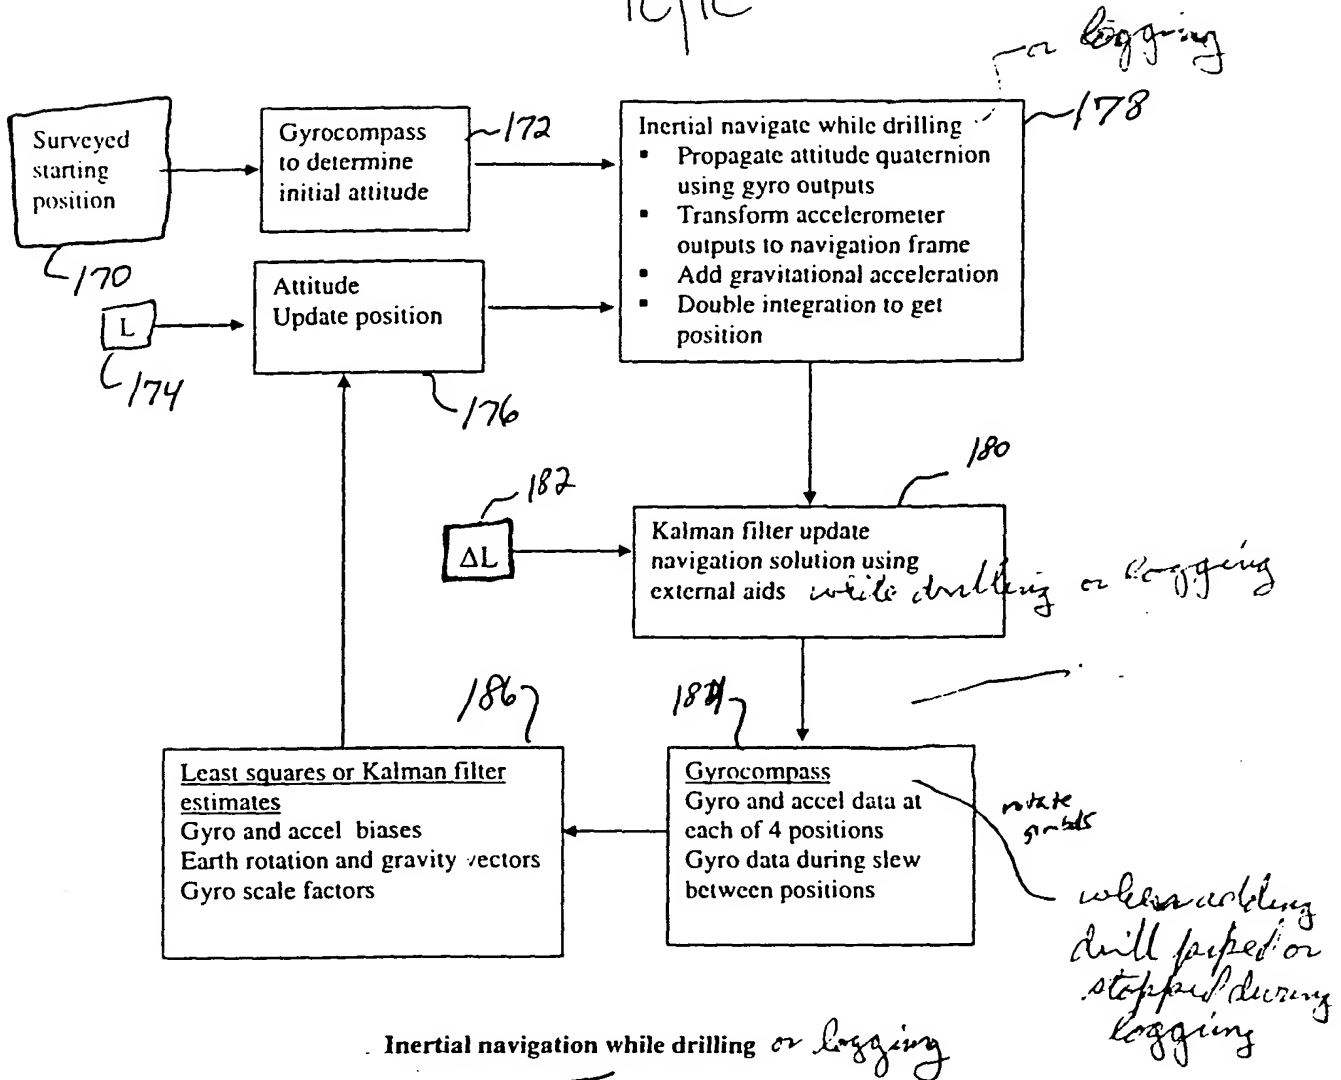 or logging
Surveyed
starting
position
170
Gyrocompass
to determine
initial attitude
172
Inertial navigate while drilling
▪ Propagate attitude quaternion
using gyro outputs
▪ Transform accelerometer
outputs to navigation frame
▪ Add gravitational acceleration
▪ Double integration to get
position
178
L
174
Attitude
Update position
176
ΔL
182
180
Kalman filter update
navigation solution using
external aids while drilling or logging
186
Least squares or Kalman filter
estimates
Gyro and accel biases
Earth rotation and gravity vectors
Gyro scale factors
184
Gyrocompass
Gyro and accel data at
each of 4 positions
Gyro data during slew
between positions
rotate
gimbals
when adding
drill piped or
stopped during
logging
Inertial navigation while drilling or logging